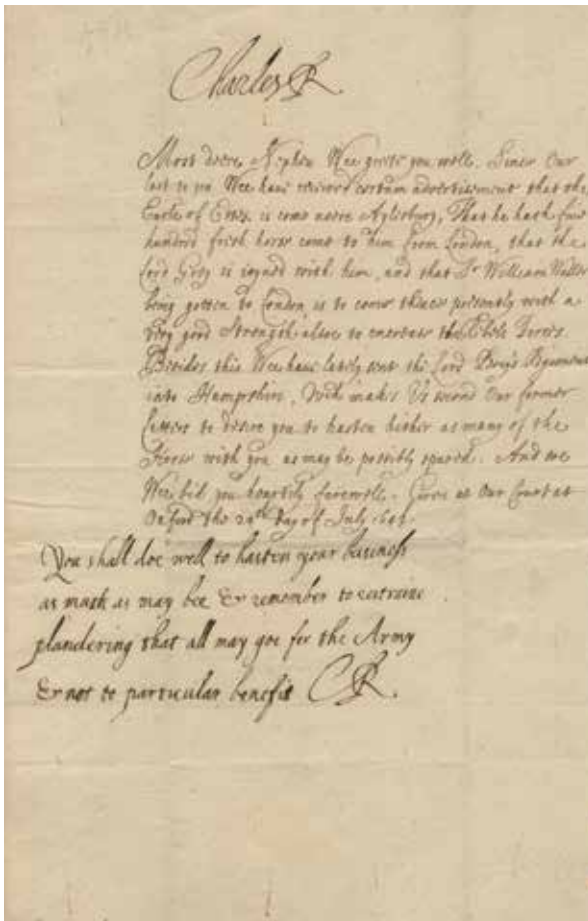 Charles R.
Most deere Nephew Wee greete you well. Since Our
last to you Wee have received certaine advertisement that the
Earle of Essex is come neere Aylisbury, That he hath five
hundred fresh horse come to him from London, that the
Lord Grey is ioyned with him, and that Sr William Waller
being gotten to London, is to come thence presently with a
very good strength alsoe to encrease the Rebells forces.
Besides this Wee have lately sent the Lord Regiment
into Hampshire, Wch makes Us second Our former
Letters to desire you to hasten hither as many of the
Horse with you as may be possibly spared. And soe
Wee bid you heartily farewell. Given at Our Court at
Oxford the day of July
You shall doe well to hasten your business
as much as may bee & remember to restraine
plundering that all may goe for the Army
& not to particular benefit CR.